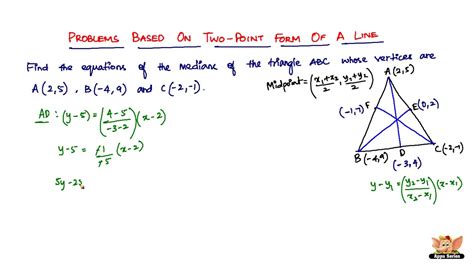 PROBLEMS BASED ON TWO-POINT FORM OF A LINE
Find the equations of the medians of the triangle ABC whose vertices are
A(2,5), B(-4,9) and C(-2,-1).
Midpoint = (x₁+x₂/2, y₁+y₂/2)
A(2,5)
AD: (y-5) = (4-5/-3-2)(x-2)
(-1,7) F
E(0,2)
y-5 = -1/-5 (x-2)
B(-4,9)
D
C(-2,-1)
(-3,4)
5y-25
y-y₁ = (y₂-y₁/x₂-x₁)(x-x₁)
Appu Series